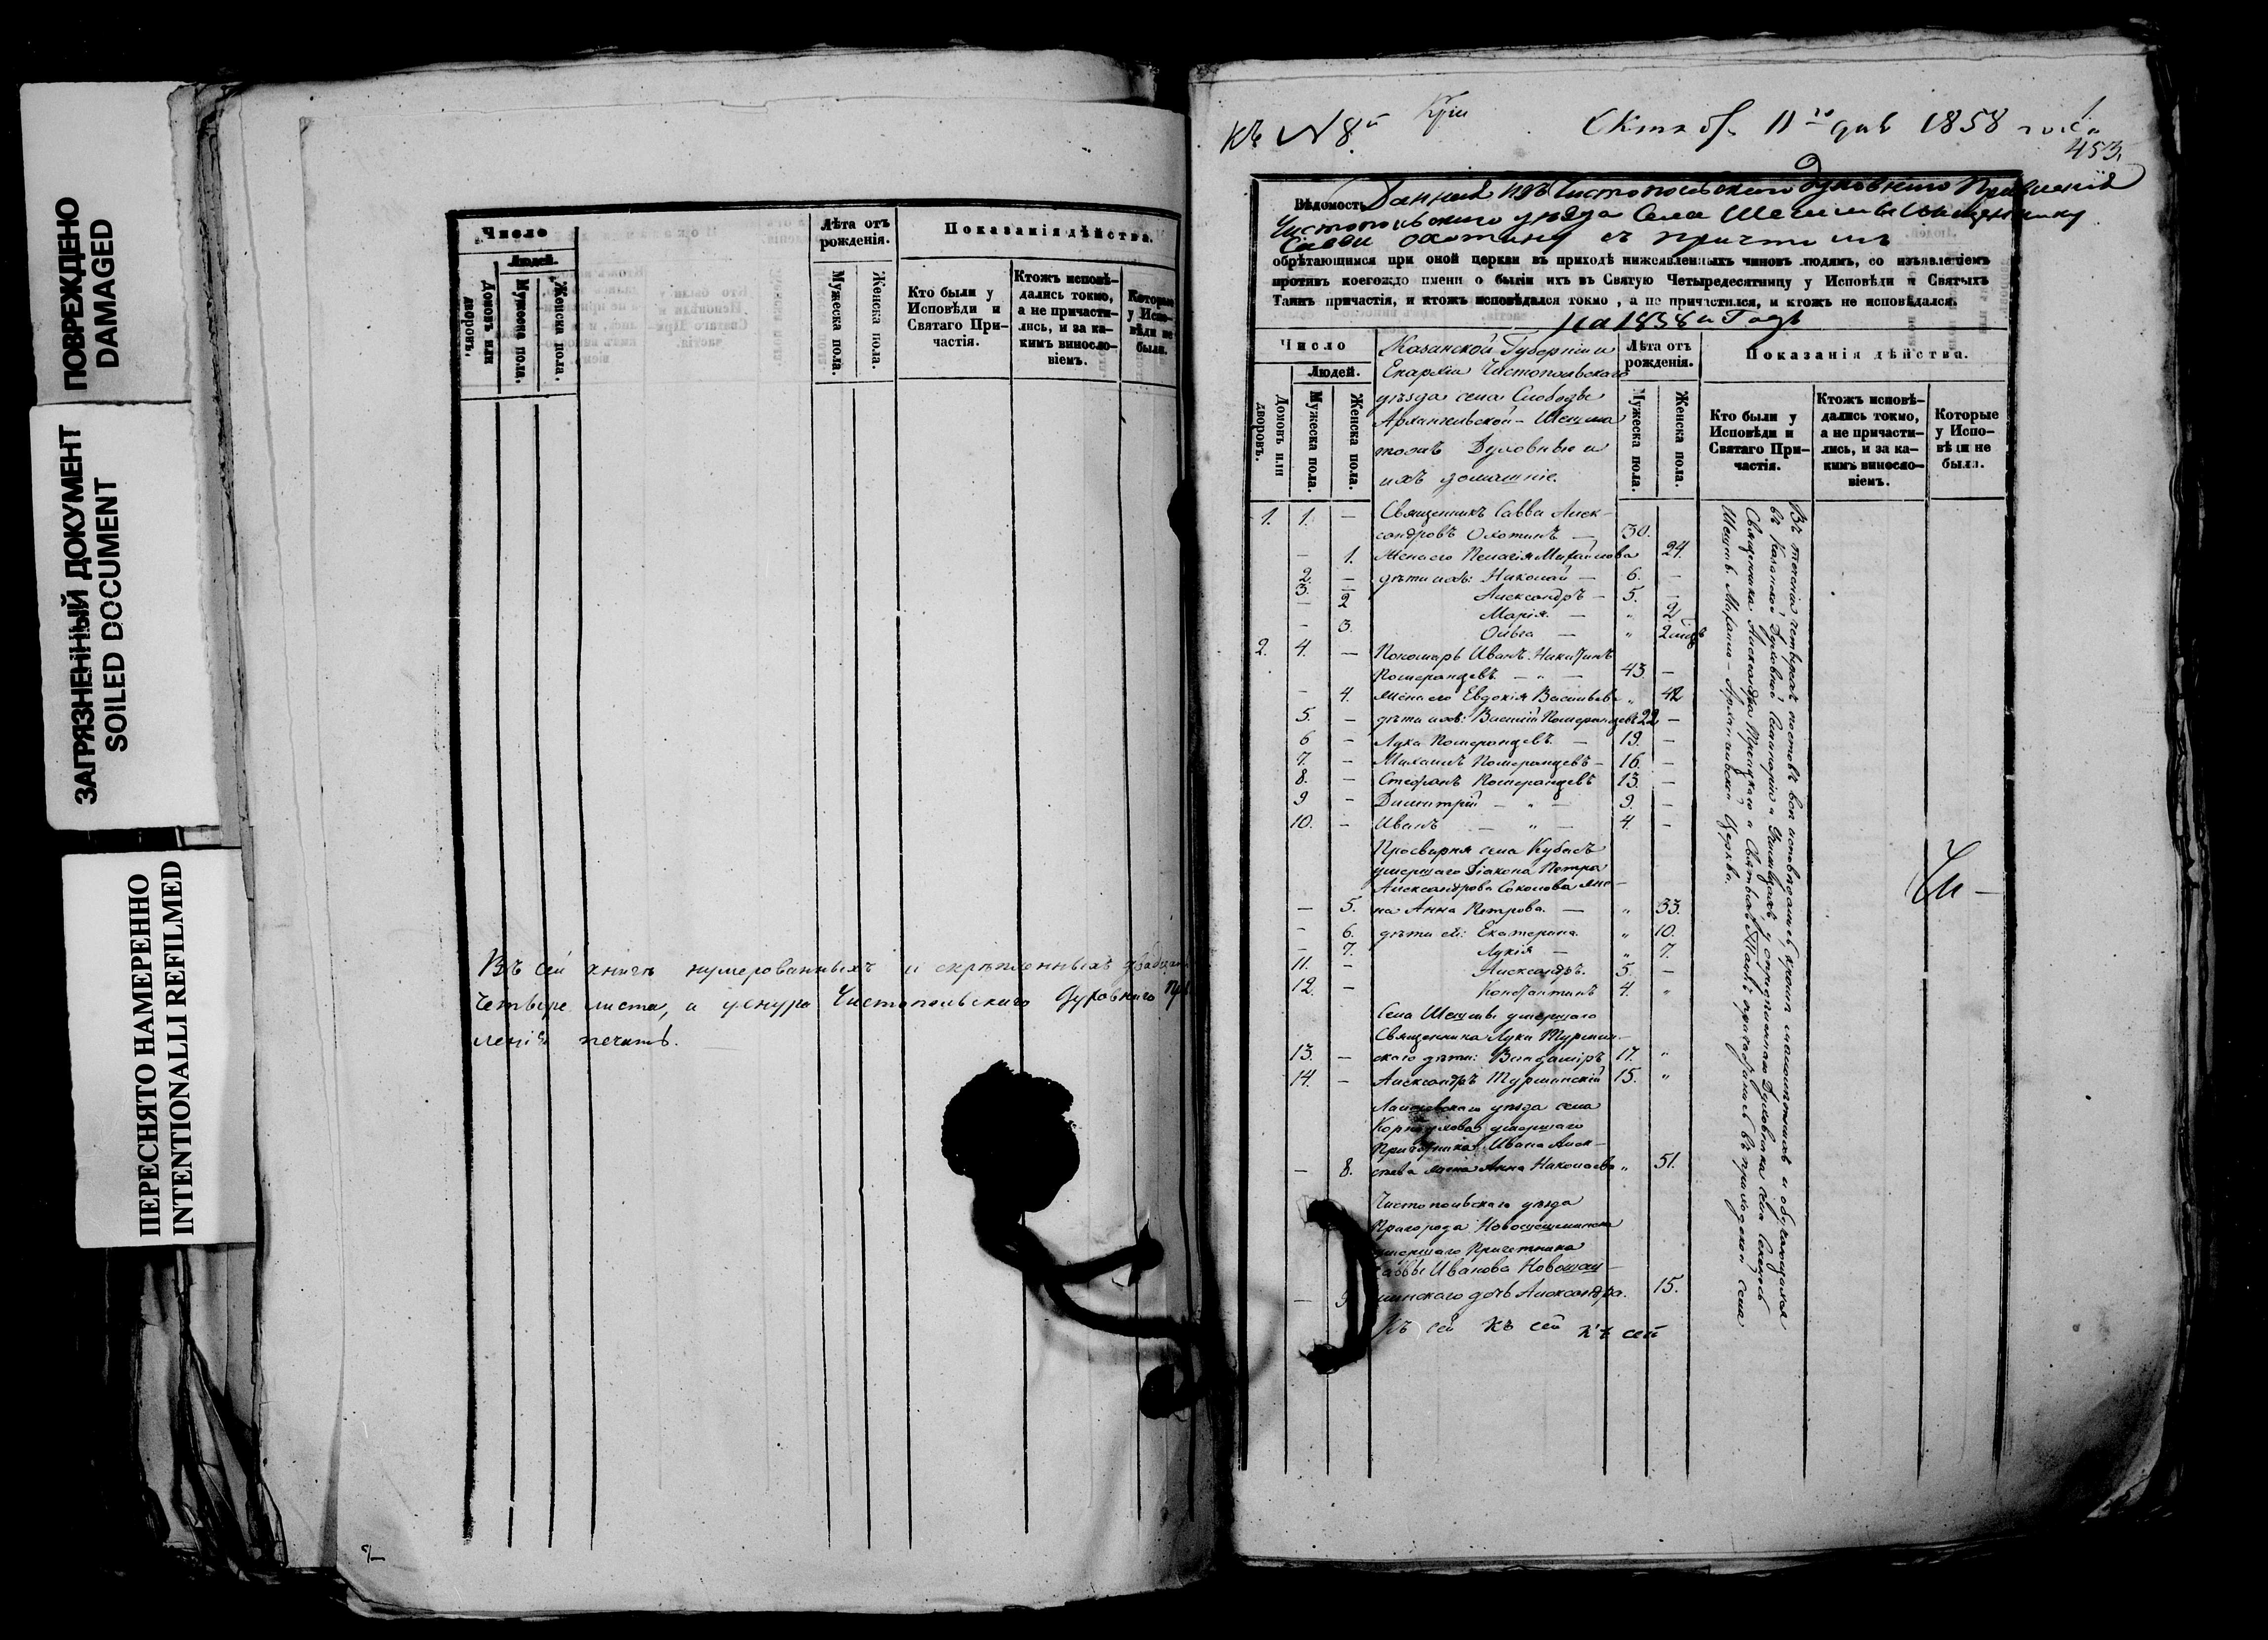 ПОВРЕЖДЕНО
DAMAGED
ЗАГРЯЗНЕННЫЙ ДОКУМЕНТ
SOILED DOCUMENT
ПЕРЕСНЯТО НАМЕРЕННО
INTENTIONALLI REFILMED
Число
Людей.
Домовъ или дворовъ.
Мужеска пола.
Женска пола.
Лѣта отъ рожденія.
Мужеска пола.
Женска пола.
Показанія дѣйства.
Кто были у Исповѣди и Святаго Причастія.
Ктожъ исповѣдались токмо, а не причастились, и за какимъ винословіемъ.
Которые у Исповѣди не были.
Въ сей книгѣ нумерованныхъ и скрѣпленныхъ двадцать
четыре листа, а у шнура Чистопольскаго Духовнаго
печать.
Къ № 8й
Октяб. 11го дня 1858 года
1.
453.
Вѣдомость
Данная изъ Чистопольскаго Духовнаго Правленія
Чистопольскаго уѣзда Села Шешмы Священнику
Саввѣ Охотину съ причтомъ
обрѣтающимся при оной церкви въ приходѣ нижеявленныхъ чиновъ людямъ, со изъявленіемъ
противъ коегождо имени о бытіи ихъ въ Святую Четыредесятницу у Исповѣди и Святыхъ
Таинъ причастія, и ктожъ исповѣдался токмо, а не причастился, и ктожъ не исповѣдался.
на 1858й Годъ
Число
Людей.
Домовъ или дворовъ.
Мужеска пола.
Женска пола.
Казанской Губерніи и
Епархіи Чистопольскаго
уѣзда села Слободы
Архангельской-Шешма
тожъ Духовные и
ихъ домашніе.
Лѣта отъ рожденія.
Мужеска пола.
Женска пола.
Показанія дѣйства.
Кто были у Исповѣди и Святаго Причастія.
Ктожъ исповѣдались токмо, а не причастились, и за какимъ винословіемъ.
Которые у Исповѣди не были.
1. 1. — Священникъ Савва Алек-
сандровъ Охотинъ — 30.
— 1. Жена его Пелагія Михайлова 24.
2. — дѣти ихъ: Николай — 6. —
3. — Александръ — 5. —
— 2 Марія. — " 2
— 3. Ольга — " 2 мѣс
2. 4. — Пономарь Иванъ Никитинъ
Померанцевъ — " — 43 —
— 4. Жена его Евдокія Васильева " 42
5. — дѣти ихъ: Василій Померанцевъ 22 —
6 — Лука Померанцевъ — 19. —
7. — Михаилъ Померанцевъ — 16. —
8. — Стефанъ Померанцевъ 13. —
9 — Димитрій — " — 9. —
10. — Иванъ — " — 4. —
Просвирня села Кубасъ
умершаго Діакона Петра
Александрова Соколова же-
— 5. на Анна Петрова. — " 33.
— 6. дѣти ея: Екатерина. " 10.
— 7. Лукія — " 7.
11. — Александръ. 5. —
12. — Константинъ 4. "
Села Шешмы умершаго
Священника Луки Турмин-
13. — скаго дѣти: Владиміръ 17. "
14. — Александръ Турминскій 15. "
Лаишевскаго уѣзда села
умершаго
Причетника Ивана Алек-
— 8. сѣева жена Анна Николаева " 51.
Чистопольскаго уѣзда
Пригорода Новошешминска
умершаго Причетника
Саввы Иванова Новошеш-
— 9 минскаго дочь Александра. 15.
Къ сей къ сей къ сей
Въ теченіи четырехъ постовъ вси исповѣдались кромѣ малолѣтнихъ и обучающихся
въ Казанской Духовной Семинаріи и Училищахъ, у опредѣленнаго Духовника села
Священника Александра Троицкаго и Святыхъ Таинъ причащались въ приходской села
Шешмы Михаило-Архангельской Церкви.